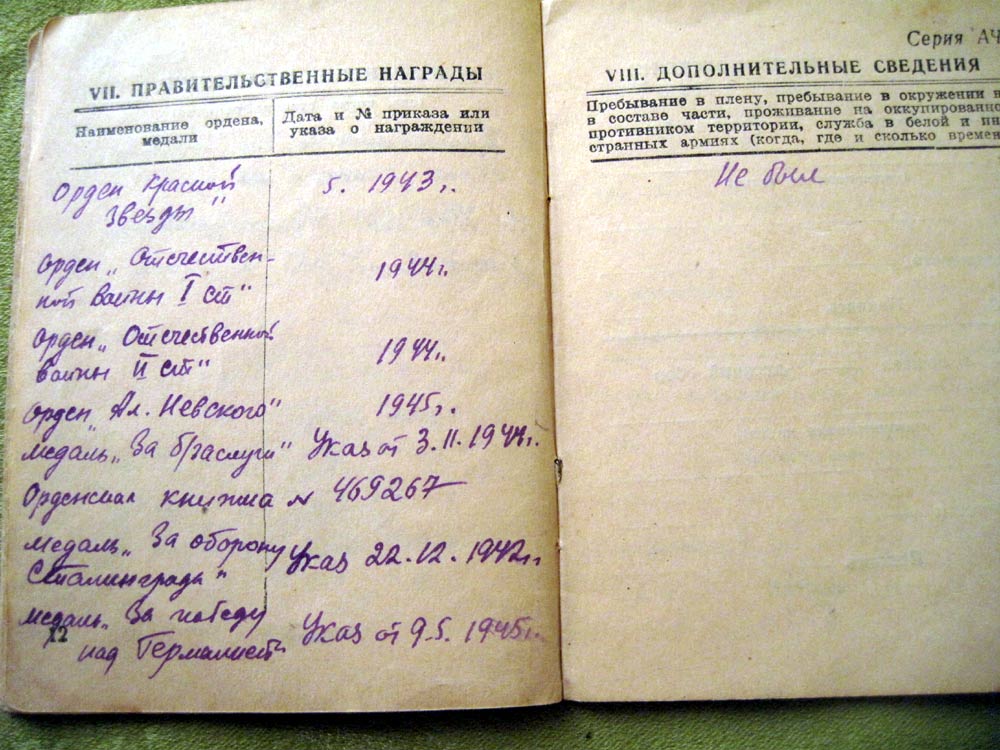 VII. ПРАВИТЕЛЬСТВЕННЫЕ НАГРАДЫ
Наименование ордена,
медали
Дата и № приказа или
указа о награждении
Орден Красной
Звезды"
5. 1943 г.
Орден „Отечествен-
ной войны I ст"
1944 г.
Орден „Отечественной
войны II ст"
1944 г.
Орден „Ал. Невского"
1945 г.
медаль „За б/заслуги" Указ от 3.11.1944 г.
Орденская книжка № 469267
медаль „За оборону
Сталинграда"
Указ 22.12.1942 г.
медаль „За победу
над Германией"
Указ от 9.5.1945 г.
12
Серия АЧ
VIII. ДОПОЛНИТЕЛЬНЫЕ СВЕДЕНИЯ
Пребывание в плену, пребывание в окружении в
в составе части, проживание на оккупированно
противником территории, служба в белой и ин
странных армиях (когда, где и сколько времен
Не был